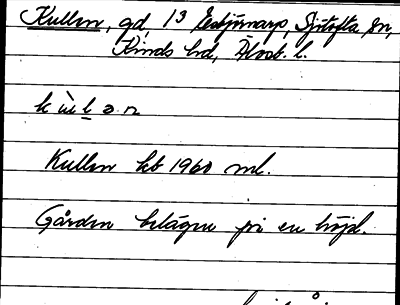 Kullen, gd, 13 Erikstorp, Sjötofta sn,
Kinds hd, Älvsb. l.
kùlən
Kullen kb 1960 ml.
Gården belägen på en höjd.